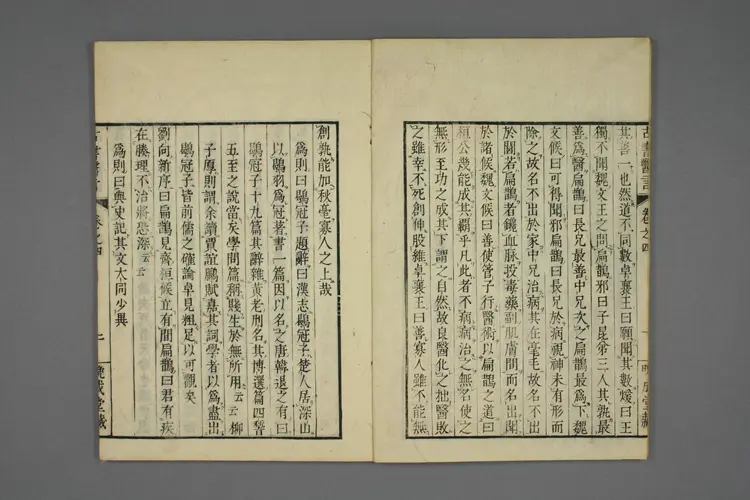 古書醫言 卷之四 一 晩成堂藏
其善一也然道不同數卓襄王曰願聞其數煖曰王
獨不聞魏文王之問扁鵲邪曰子昆弟三人其孰最
善爲醫扁鵲曰長兄最善中兄次之扁鵲最爲下魏
文候曰可得聞邪扁鵲曰長兄於病視神未有形而
除之故名不出於家中兄治病其在毫毛故名不出
於閭若扁鵲者鑱血脉投毒藥副肌膚間而名出聞
於諸候魏文候曰善使管子行醫術以扁鵲之道曰
桓公幾能成其霸乎凡此者不病病治之無名使之
無形至功之成其下謂之自然故良醫化之拙醫敗
之雖幸不死創伸股維卓襄王曰善寡人雖不能無
創孰能加秋毫寡人之上哉
爲則曰鶡冠子題辭曰漢志鶡冠子楚人居深山
以鶡羽爲冠著書一篇因以名之唐韓退之有曰
鶡冠子十九篇其辭雜黃老刑名其博選篇四稽
五至之說當矣學問篇稱賤生於無所用云云柳
子厚則謂余讀賈誼鵩賦嘉其詞學者以爲盡出
鶡冠子皆前儒之確論卓見粗足以可觀矣
劉向新序曰扁鵲見齊桓候立有間扁鵲曰君有疾
在腠理不治將恐深云云
爲則曰與史記其文大同少異
古書醫言 卷之四 二 晩成堂藏